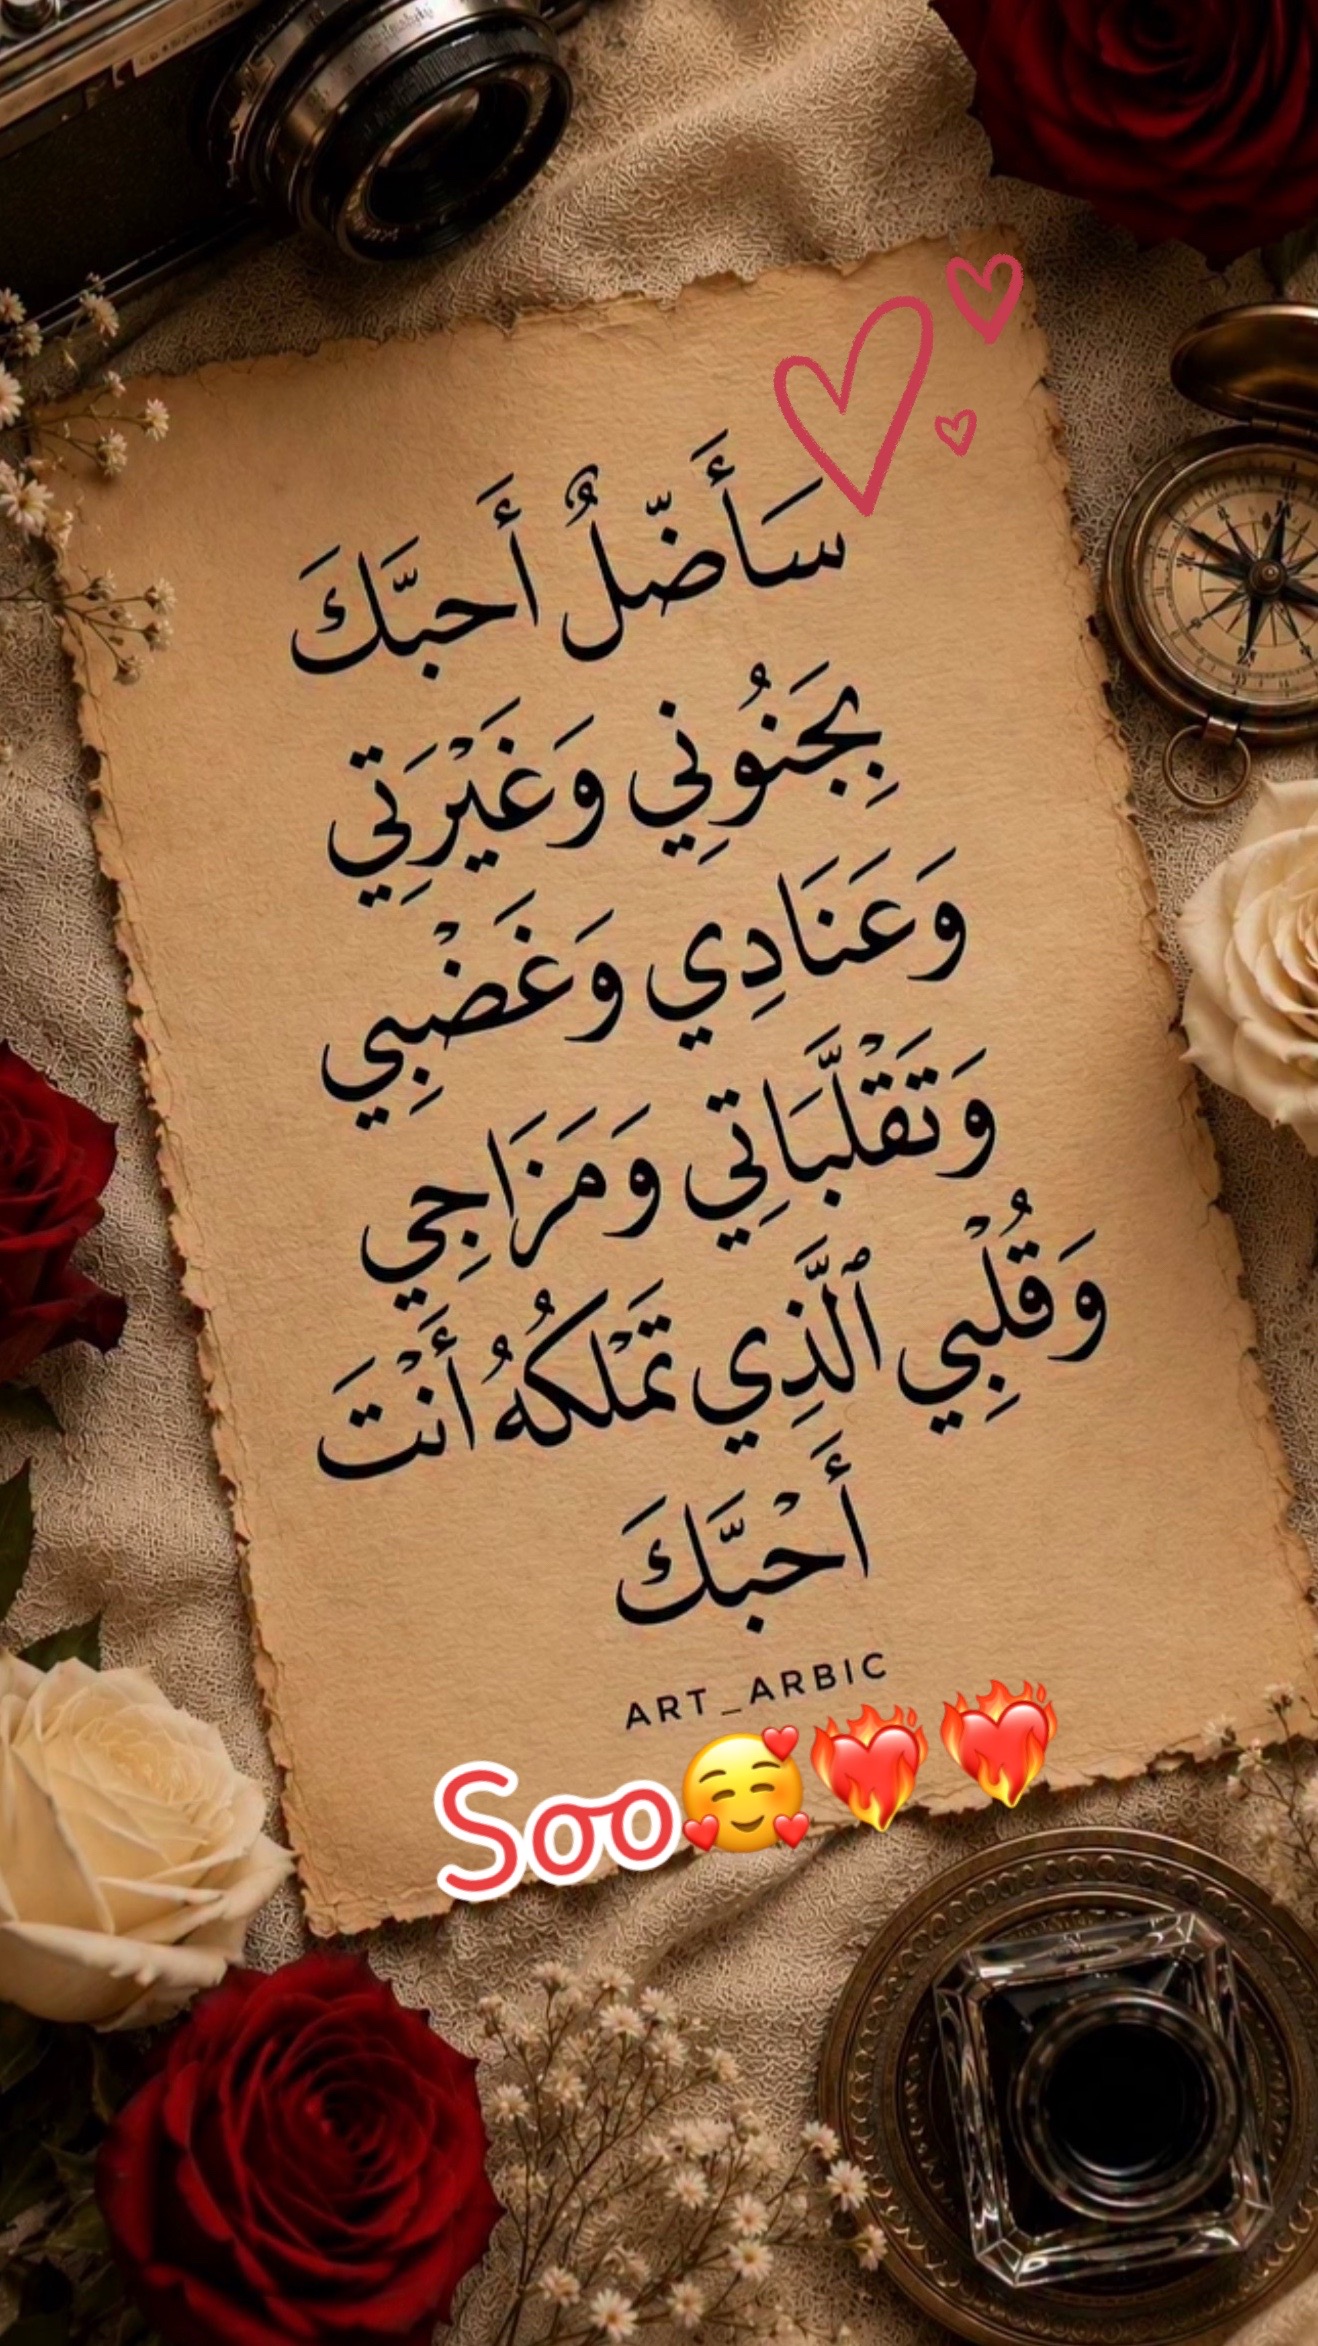 سَأَضّلٌ أَحبَّكَ
بِجَنُوُنِي وَغَيْرَتِي
وَعَنَادِي وَغَضْبِي
وَتَقْلَّبَاتِي وَمَزَاجِي
وَقُلْبِي ٱلَّذِي تَمْلكُهُ أَنْتَ
أَحْبَّكَ
ART_ARBIC
Soo🥰❤️‍🔥❤️‍🔥